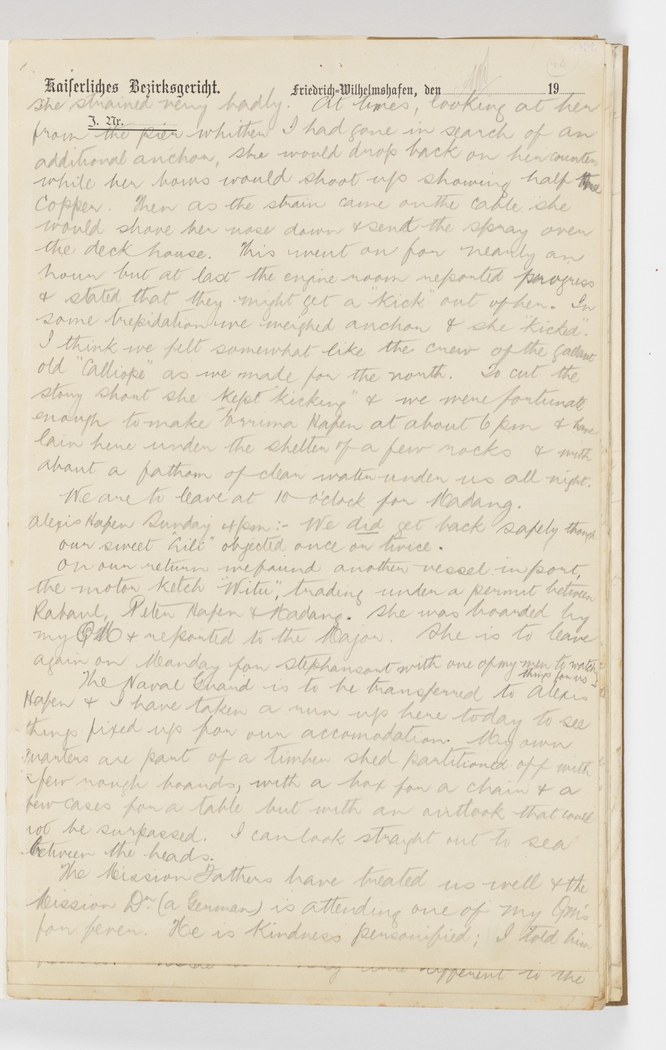 Kaiserliches Bezirksgericht. Friedrich-Wilhelmshafen, den 19
she strained very badly. At times, looking at her
J. Nr.
from the pier whither I had gone in search of an
additional anchor, she would drop back on her counter
while her bows would shoot up showing half the
copper. Then as the strain came on the cable she
would shove her nose down & send the spray over
the deck house. This went on for nearly an
hour but at last the engine room reported progress
& stated that they might get a "kick" out of her. In
some trepidation we weighed anchor & she "kicked".
I think we felt somewhat like the crew of the gallant
old "Calliope" as we made for the north. To cut the
story short she kept "kicking" & we were fortunate
enough to make Hafen at about 6 pm & have
lain here under the shelter of a few rocks & with
about a fathom of clear water under us all night.
We are to leave at 10 o'clock for Madang.
Alexis Hafen Sunday 4 pm:- We did get back safely though
our sweet "Lili" objected once or twice.
On our return we found another vessel in port,
the motor ketch "Witu", trading under a permit between
Rabaul, Peter Hafen & Madang. She was boarded by
my & reported to the Major. She is to leave
again on Monday for Stephansort with one of my men to watch
things for us.
The Naval Guard is to be transferred to Alexis
Hafen & I have taken a run up here today to see
things fixed up for our accomodation. My own
quarters are part of a timber shed partitioned off with
a few rough boards, with a box for a chair & a
few cases for a table but with an outlook that could
not be surpassed. I can look straight out to sea
between the heads.
The Mission Fathers have treated us well & the
Mission Dr (a German) is attending one of my
for fever. He is kindness personified; I told him
different to the